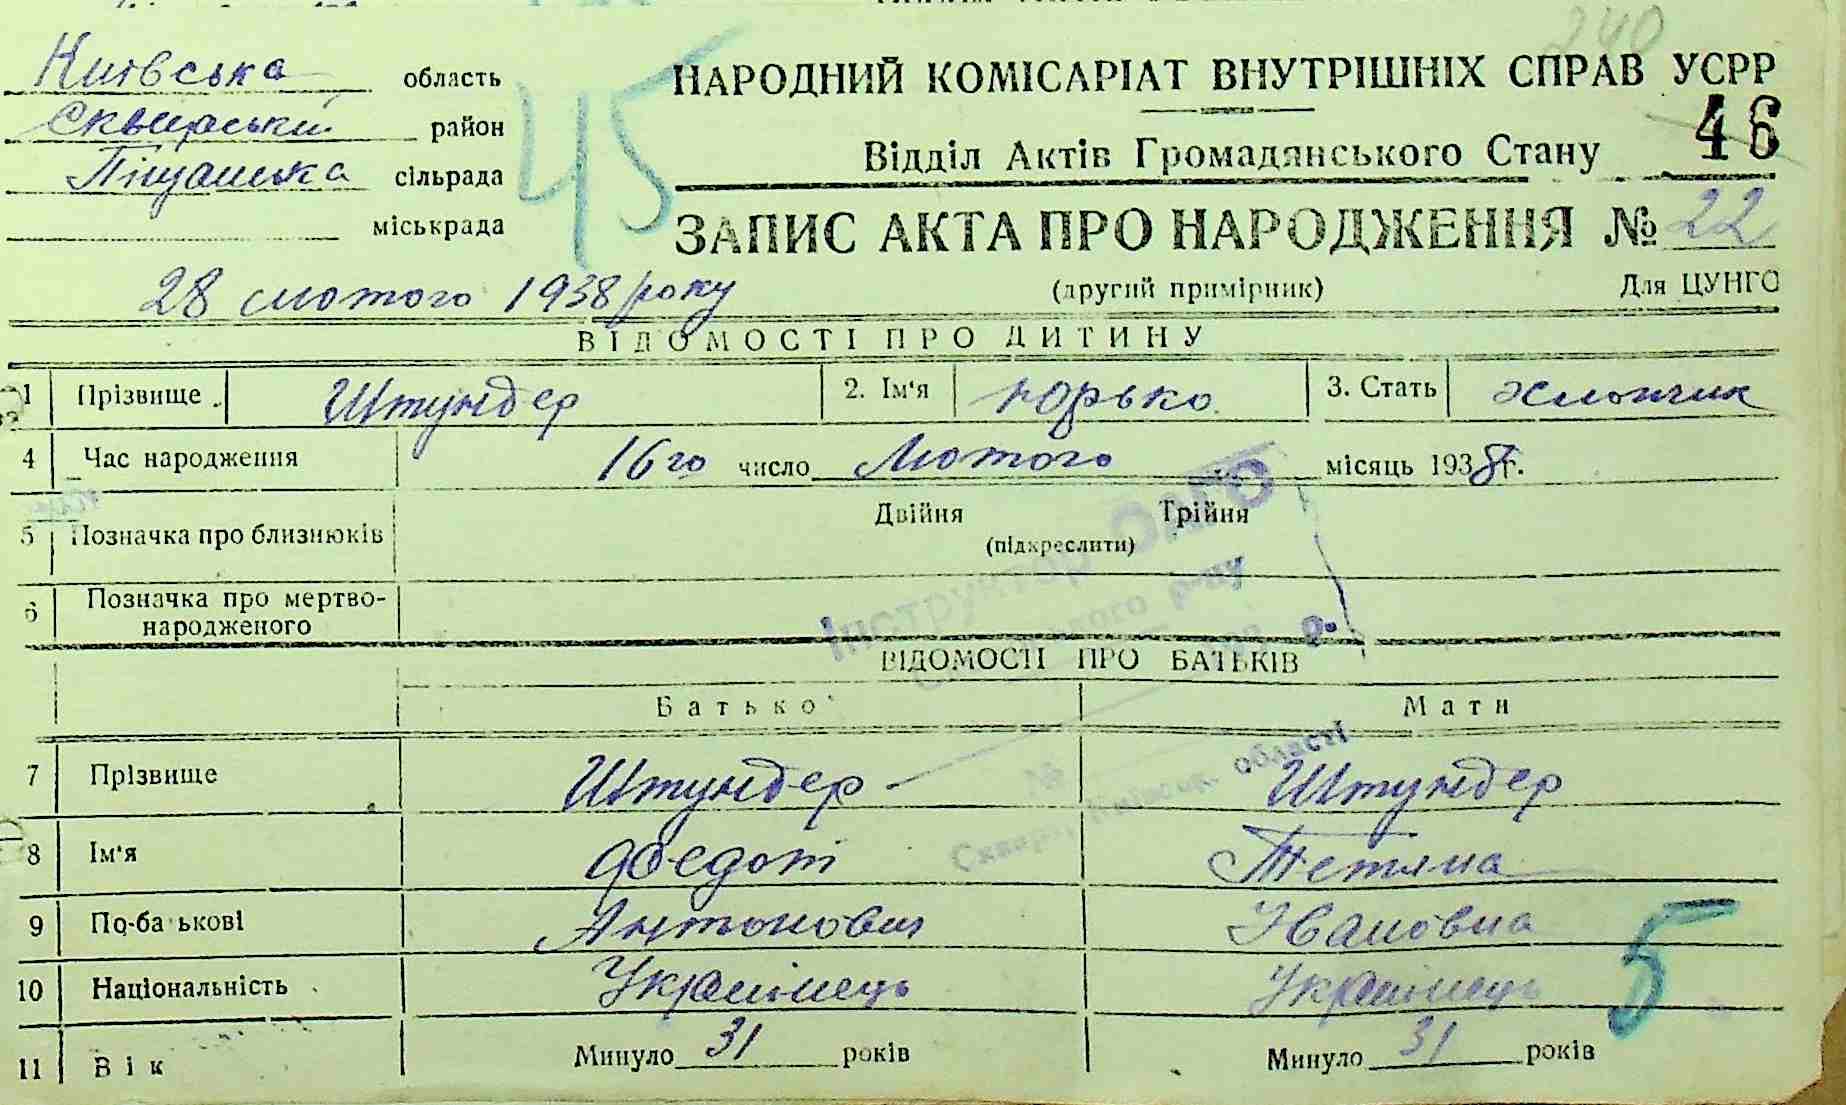 240
Київська область
Сквирський район
Піщанська сільрада
міськрада
45
НАРОДНИЙ КОМІСАРІАТ ВНУТРІШНІХ СПРАВ УСРР
46
Відділ Актів Громадянського Стану
ЗАПИС АКТА ПРО НАРОДЖЕННЯ № 22
28 лютого 1938 року
(другий примірник) Для ЦУНГО
ВІДОМОСТІ ПРО ДИТИНУ
1 Прізвище Штундер 2. Ім'я Юрько 3. Стать Хлопчик
4 Час народження 16го число Лютого місяць 1938 г.
5 Позначка про близнюків Двійня Трійня
(підкреслити)
6 Позначка про мертво-
народженого
Інструктор ОАГС
р-ну
ВІДОМОСТІ ПРО БАТЬКІВ
Батько Мати
№
Київськ. області
7 Прізвище Штундер Штундер
8 Ім'я Федот Тетяна
9 По-ба ькові Антонович Івановна
10 Національність Українець Українець
5
11 Вік Минуло 31 років Минуло 31 років